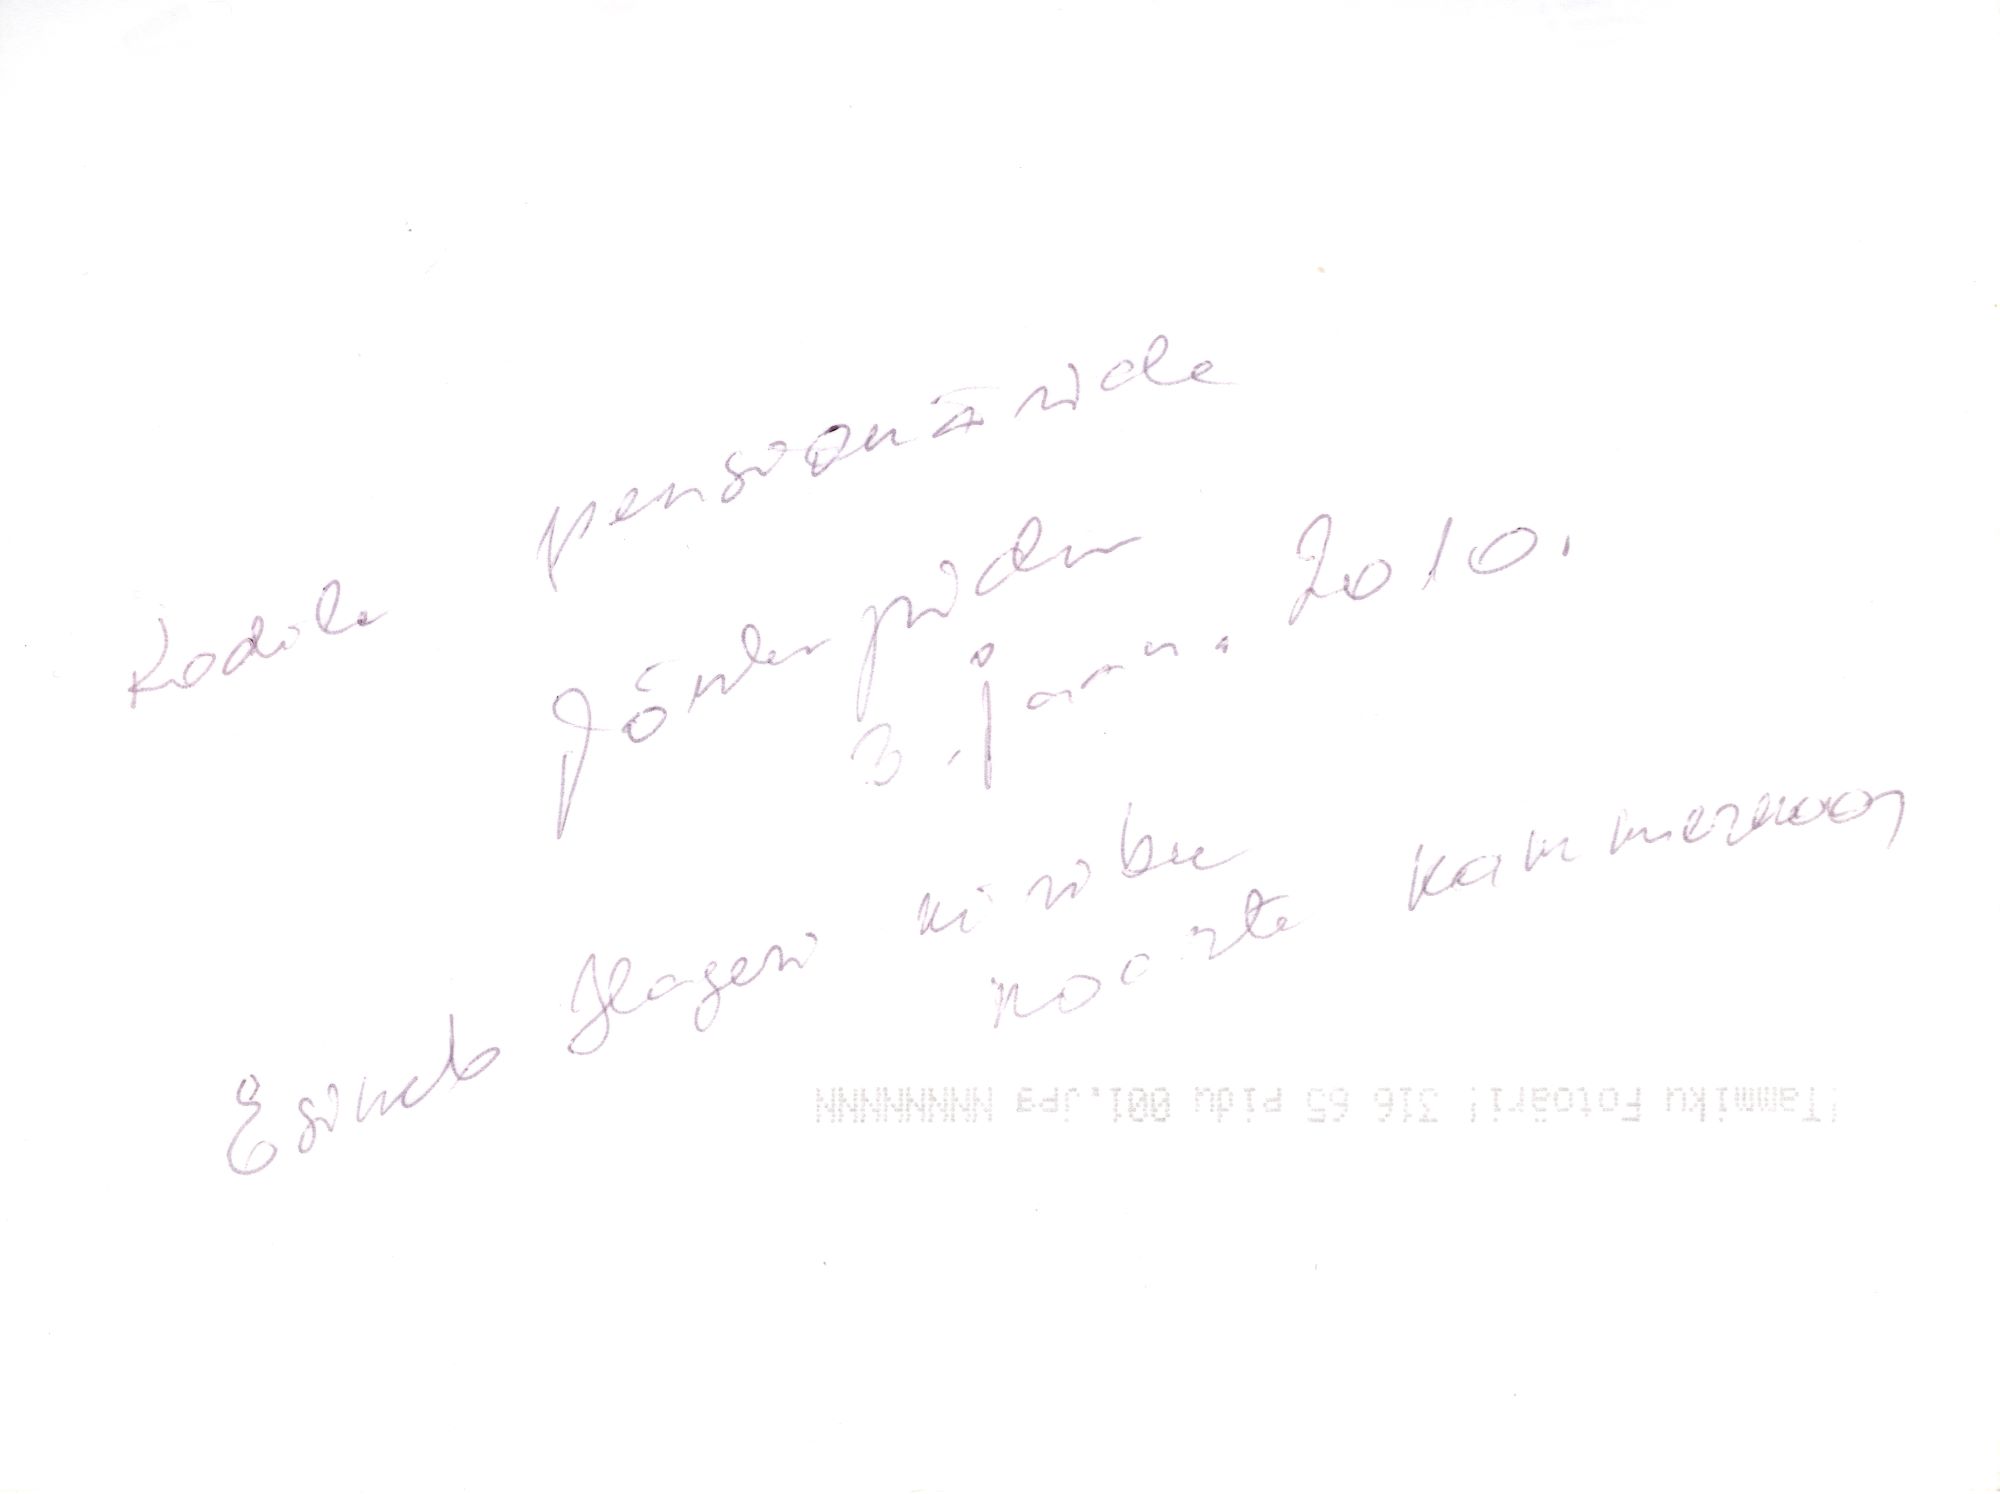 Kodila pensionäride
jõulupidu
3. jaan. 2010.
Esineb Hageri kiriku
noorte kammerkoor
!Tammiku Fotoäri! 316 65 pidu 001.jpg NNNNNNNNN